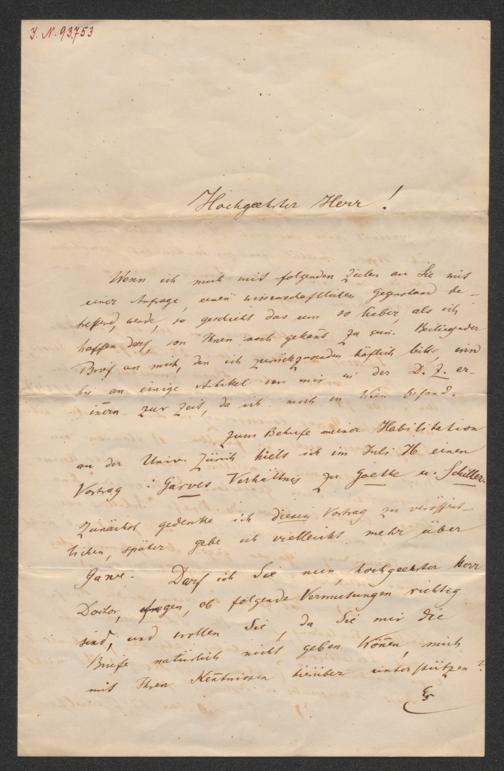 I. N. 93753
Hochgeehrter Herr!
Wenn ich mich mit folgenden Zeilen an Sie mit
einer Anfrage, einen wissenschaftlichen Gegenstand be-
treffend, wende, so geschieht das um so lieber, als ich
hoffen darf, von Ihnen noch gekannt zu sein. Beiliegender
Brief an mich, den ich zurückzusenden höflich bitte, wird
Sie an einige Artikel von mir in der D. Z. er-
innern zur Zeit, da ich noch in Wien befand.
Zum Behufe meiner Habilitation
an der Univ. Zürich hielt ich im Juli einen
Vortrag: Garves Verhältnis zu Goethe u. Schiller.
Zunächst gedenke ich diesen Vortrag zu veröffent-
lichen, später gebe ich vielleicht mehr über
Garve. Darf ich Sie nun, hochgeehrter Herr
Doctor, fragen, ob folgende Vermutungen richtig
sind, und wollen Sie, da Sie mir die
Briefe natürlich nicht geben können, mich
mit Ihren Kenntnissen hierüber unterstützen?